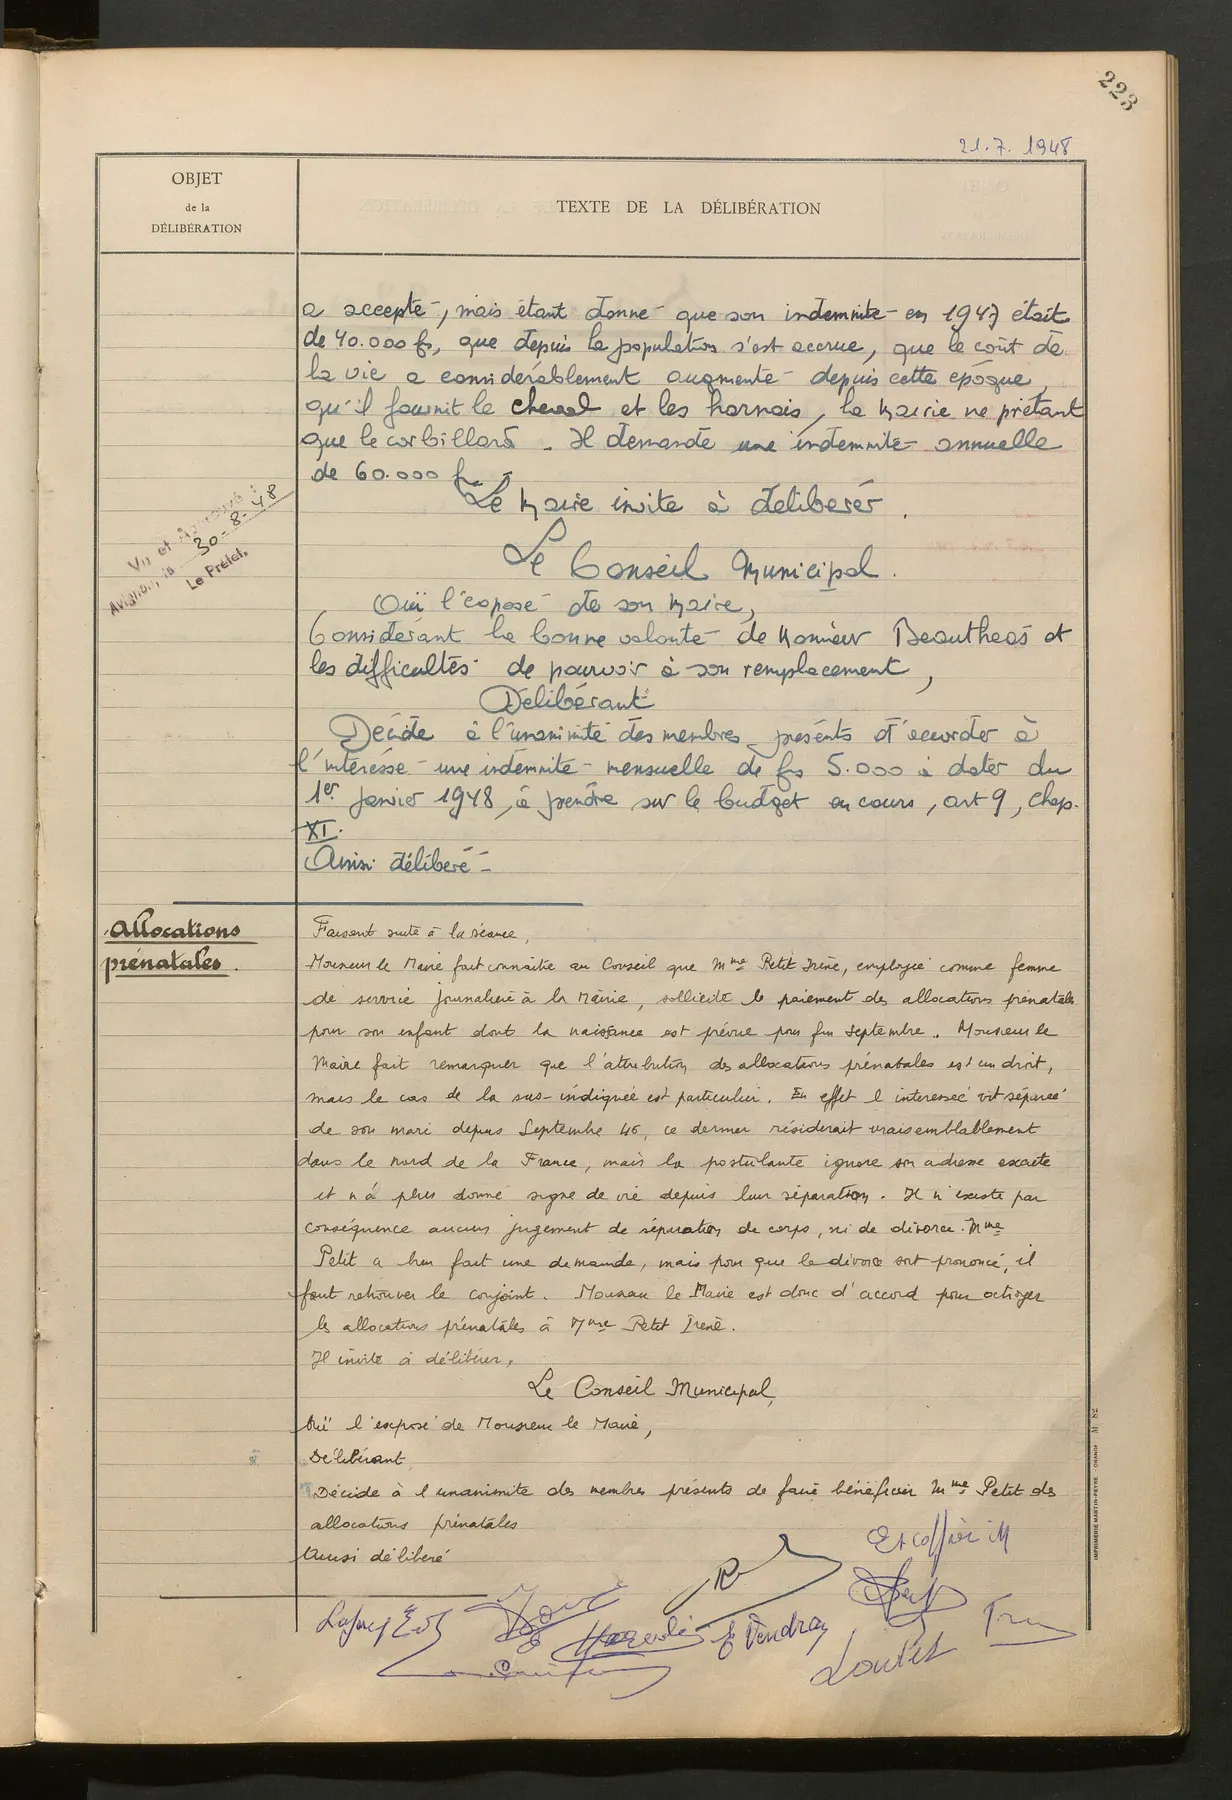 223
21.7.1948
OBJET
de la
DÉLIBÉRATION
TEXTE DE LA DÉLIBÉRATION
a accepté, mais étant donné que son indemnité en 1947 était
de 40.000 fs, que depuis la population s'est accrue, que le coût de
la vie a considérablement augmenté depuis cette époque,
qu'il fournit le cheval et les harnais, la Mairie ne prêtant
que le corbillard. Il demande une indemnité annuelle
de 60.000 frs
Le Maire invite à délibérer.
Vu et Approuvé :
Avignon, le 30-8-48
Le Préfet,
Le Conseil Municipal.
Ouï l'exposé de son Maire,
Considérant la bonne volonté de Monsieur Beautheas et
les difficultés de pourvoir à son remplacement,
Délibérant
Décide à l'unanimité des membres présents d'accorder à
l'intéressé une indemnité mensuelle de frs 5.000 à dater du
1er Janvier 1948, à prendre sur le budget en cours, art 9, chap.
XI.
Ainsi délibéré
Allocations
prénatales.
Faisant suite à la séance,
Monsieur le Maire fait connaître au Conseil que Mme Petit Irène, employée comme femme
de service journalière à la Mairie, sollicite le paiement des allocations prénatales
pour son enfant dont la naissance est prévue pour fin septembre. Monsieur le
Maire fait remarquer que l'attribution des allocations prénatales est un droit,
mais le cas de la sus-indiquée est particulier. En effet l'interessée vit séparée
de son mari depuis Septembre 46, ce dernier résiderait vraisemblablement
dans le nord de la France, mais la postulante ignore son adresse exacte
et n'a plus donné signe de vie depuis leur séparation. Il n'existe par
conséquence aucun jugement de séparation de corps, ni de divorce. Mme
Petit a bien fait une demande, mais pour que le divorce soit prononcé, il
faut retrouver le conjoint. Monsieur le Maire est donc d'accord pour octroyer
les allocations prénatales à Mme Petit Irène.
Il invite à délibérer,
Le Conseil Municipal,
Ouï l'exposé de Monsieur le Maire,
Délibérant
Décide à l'unanimité des membres présents de faire bénéficier Mme Petit des
allocations prénatales
Ainsi délibéré
Escoffier M
E Vendran
Loubet
IMPRIMERIE MARTIN-PEYRE - ORANGE M 82